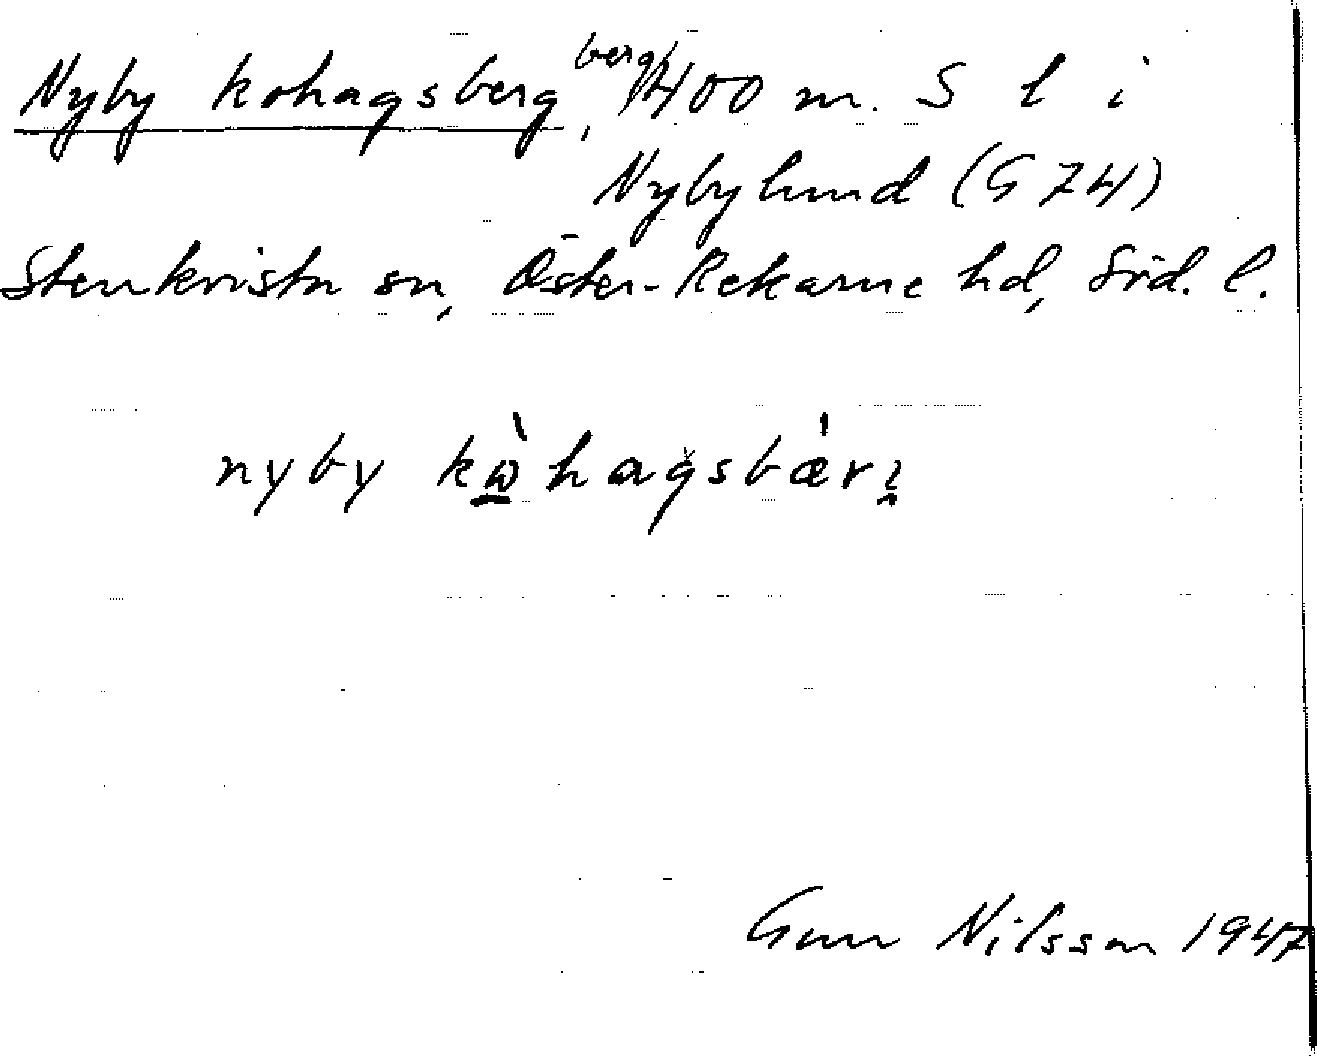 Nyby kohagsberg, berg 400 m. S l i
Nybylund (G 74)
Stenkvista sn, Öster-Rekarne hd, Söd. l.
nyby kὼhagsbærı
Gun Nilsson 1947